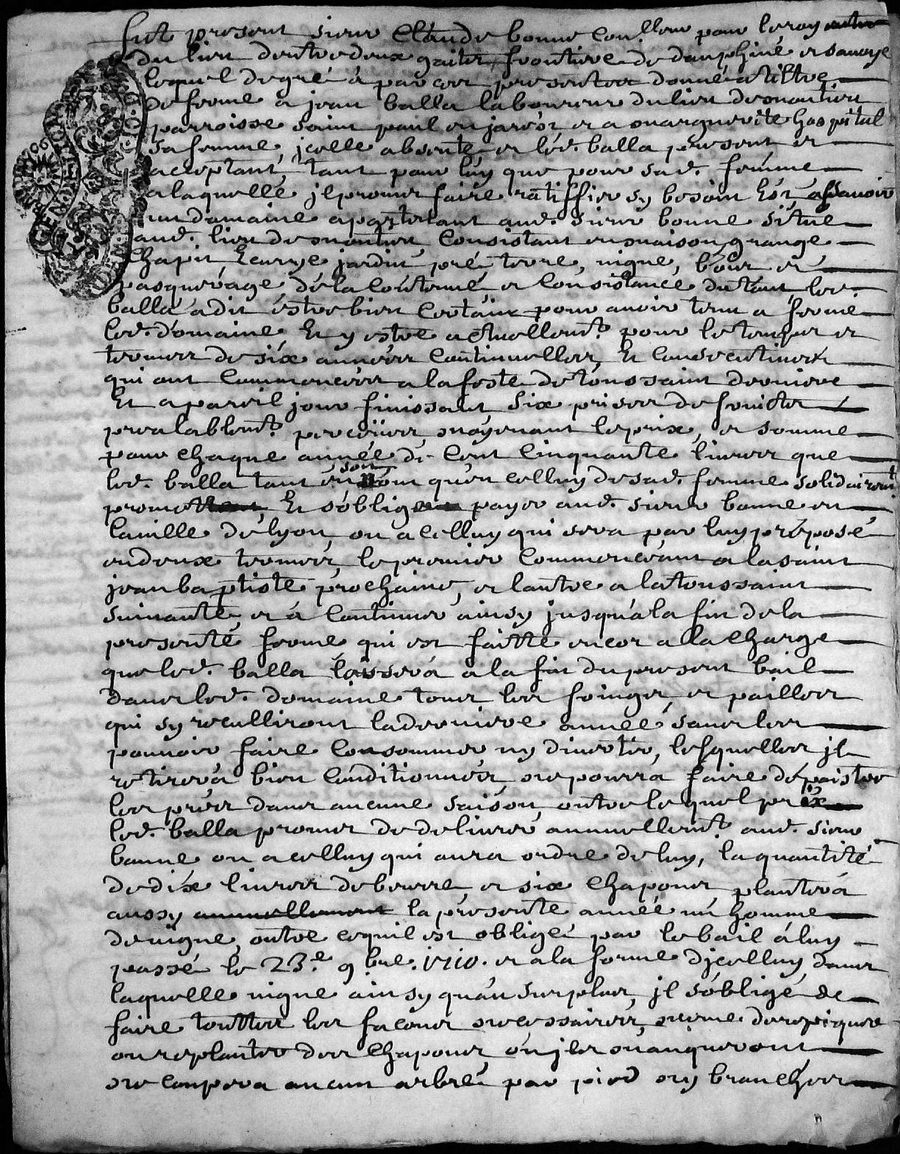 fut present sieur Claude bonne Con.ller pour le roy
du lieu dentre deux guiers, frontiere de dauphiné et savoye
lequel de gré a par ces presentes donné a tiltre
de ferme a jean balla laboureur du lieu de
parroisse saint paul en jarest et a marguerite hospital
sa femme icelle absente et led. balla present et
acceptant tant pour luy que pour sad. femme
a laquelle il promet faire ratiffier sy besoin est assavoir
un domaine apartenant aud. sieur bonne situé
aud. lieu de Consistant en maison, grange
Chapit Ecurye jardin, pré, terre, vigne, bois et
pasquerage de la Contenue et Consistance dutout led.
balla a dit estre bien Certain pour avoir tenu a ferme
led. domaine Et y estre actuellemt. pour le temps et
terme de six années Continuelles Et Consecutives
qui ont Commencées a la feste de toussaint derniere
Et a pareil jour finissant six prises de fruicts
prealablemt. perceües moyenant le prix et somme
pour chaque année de Cent Cinquante livres que
led. balla tant en son nom qu'en celluy de sad. femme solidairemt
promet Et soblige payer aud. sieur bonne en
laville de lyon ou a celluy qui sera par luy préposé
en deux termes, le premier Commenceant a la saint
jean baptiste prochaine, et lautre a la toussaint
suivante et a Continuer ainsy jusqu'a la fin de la
presente ferme qui est faitte encor a la Charge
que led. balla laissera a la fin du present bail
dans led. domaine tous les foinges et pailles
qui sy reculliront la derniere année sans les
pouvoir faire Consommer ny divertir, lesquelles il
retirera bien Conditionnées ne pourra faire depaistre
les prés dans aucune saison outre lequel prix
led. balla promet de delivrer annuellemt. aud. sieur
bonne ou a celluy qui aura ordre de luy, la quantité
de dix livres de beurre et six Chapons plantera
aussy annuellement la presente année un homme
de vigne, outre cequil est obligé par le bail a luy
passé le 23.e 9.bre. 1710. et a la forme d'jcelluy dans
laquelle vigne ainsy qu'au surplus, il soblige de
faire touttes les façons necessaires, mesme de repiquer
ou replanter des Chapons ou jls manqueront
ne Coupera aucun arbre par pied ny branches